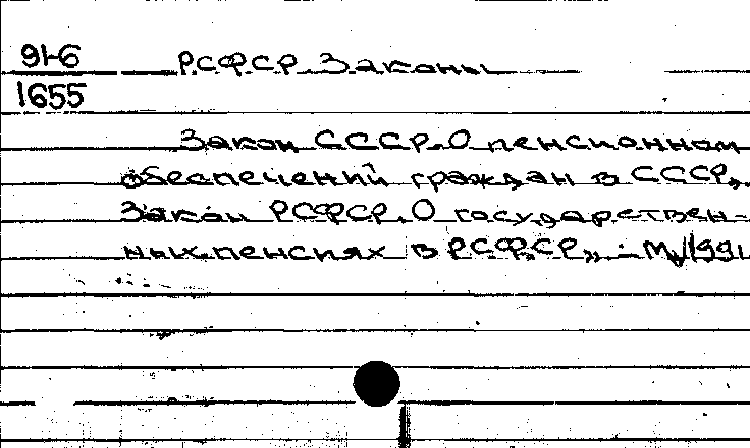 91-6
РСФСР Законы
1655
Закон СССР „О пенсионном
обеспечений граждан в СССР„.
Закон РСФСР „О государствен-
ных пенсиях в РСФСР„ – М., 1991